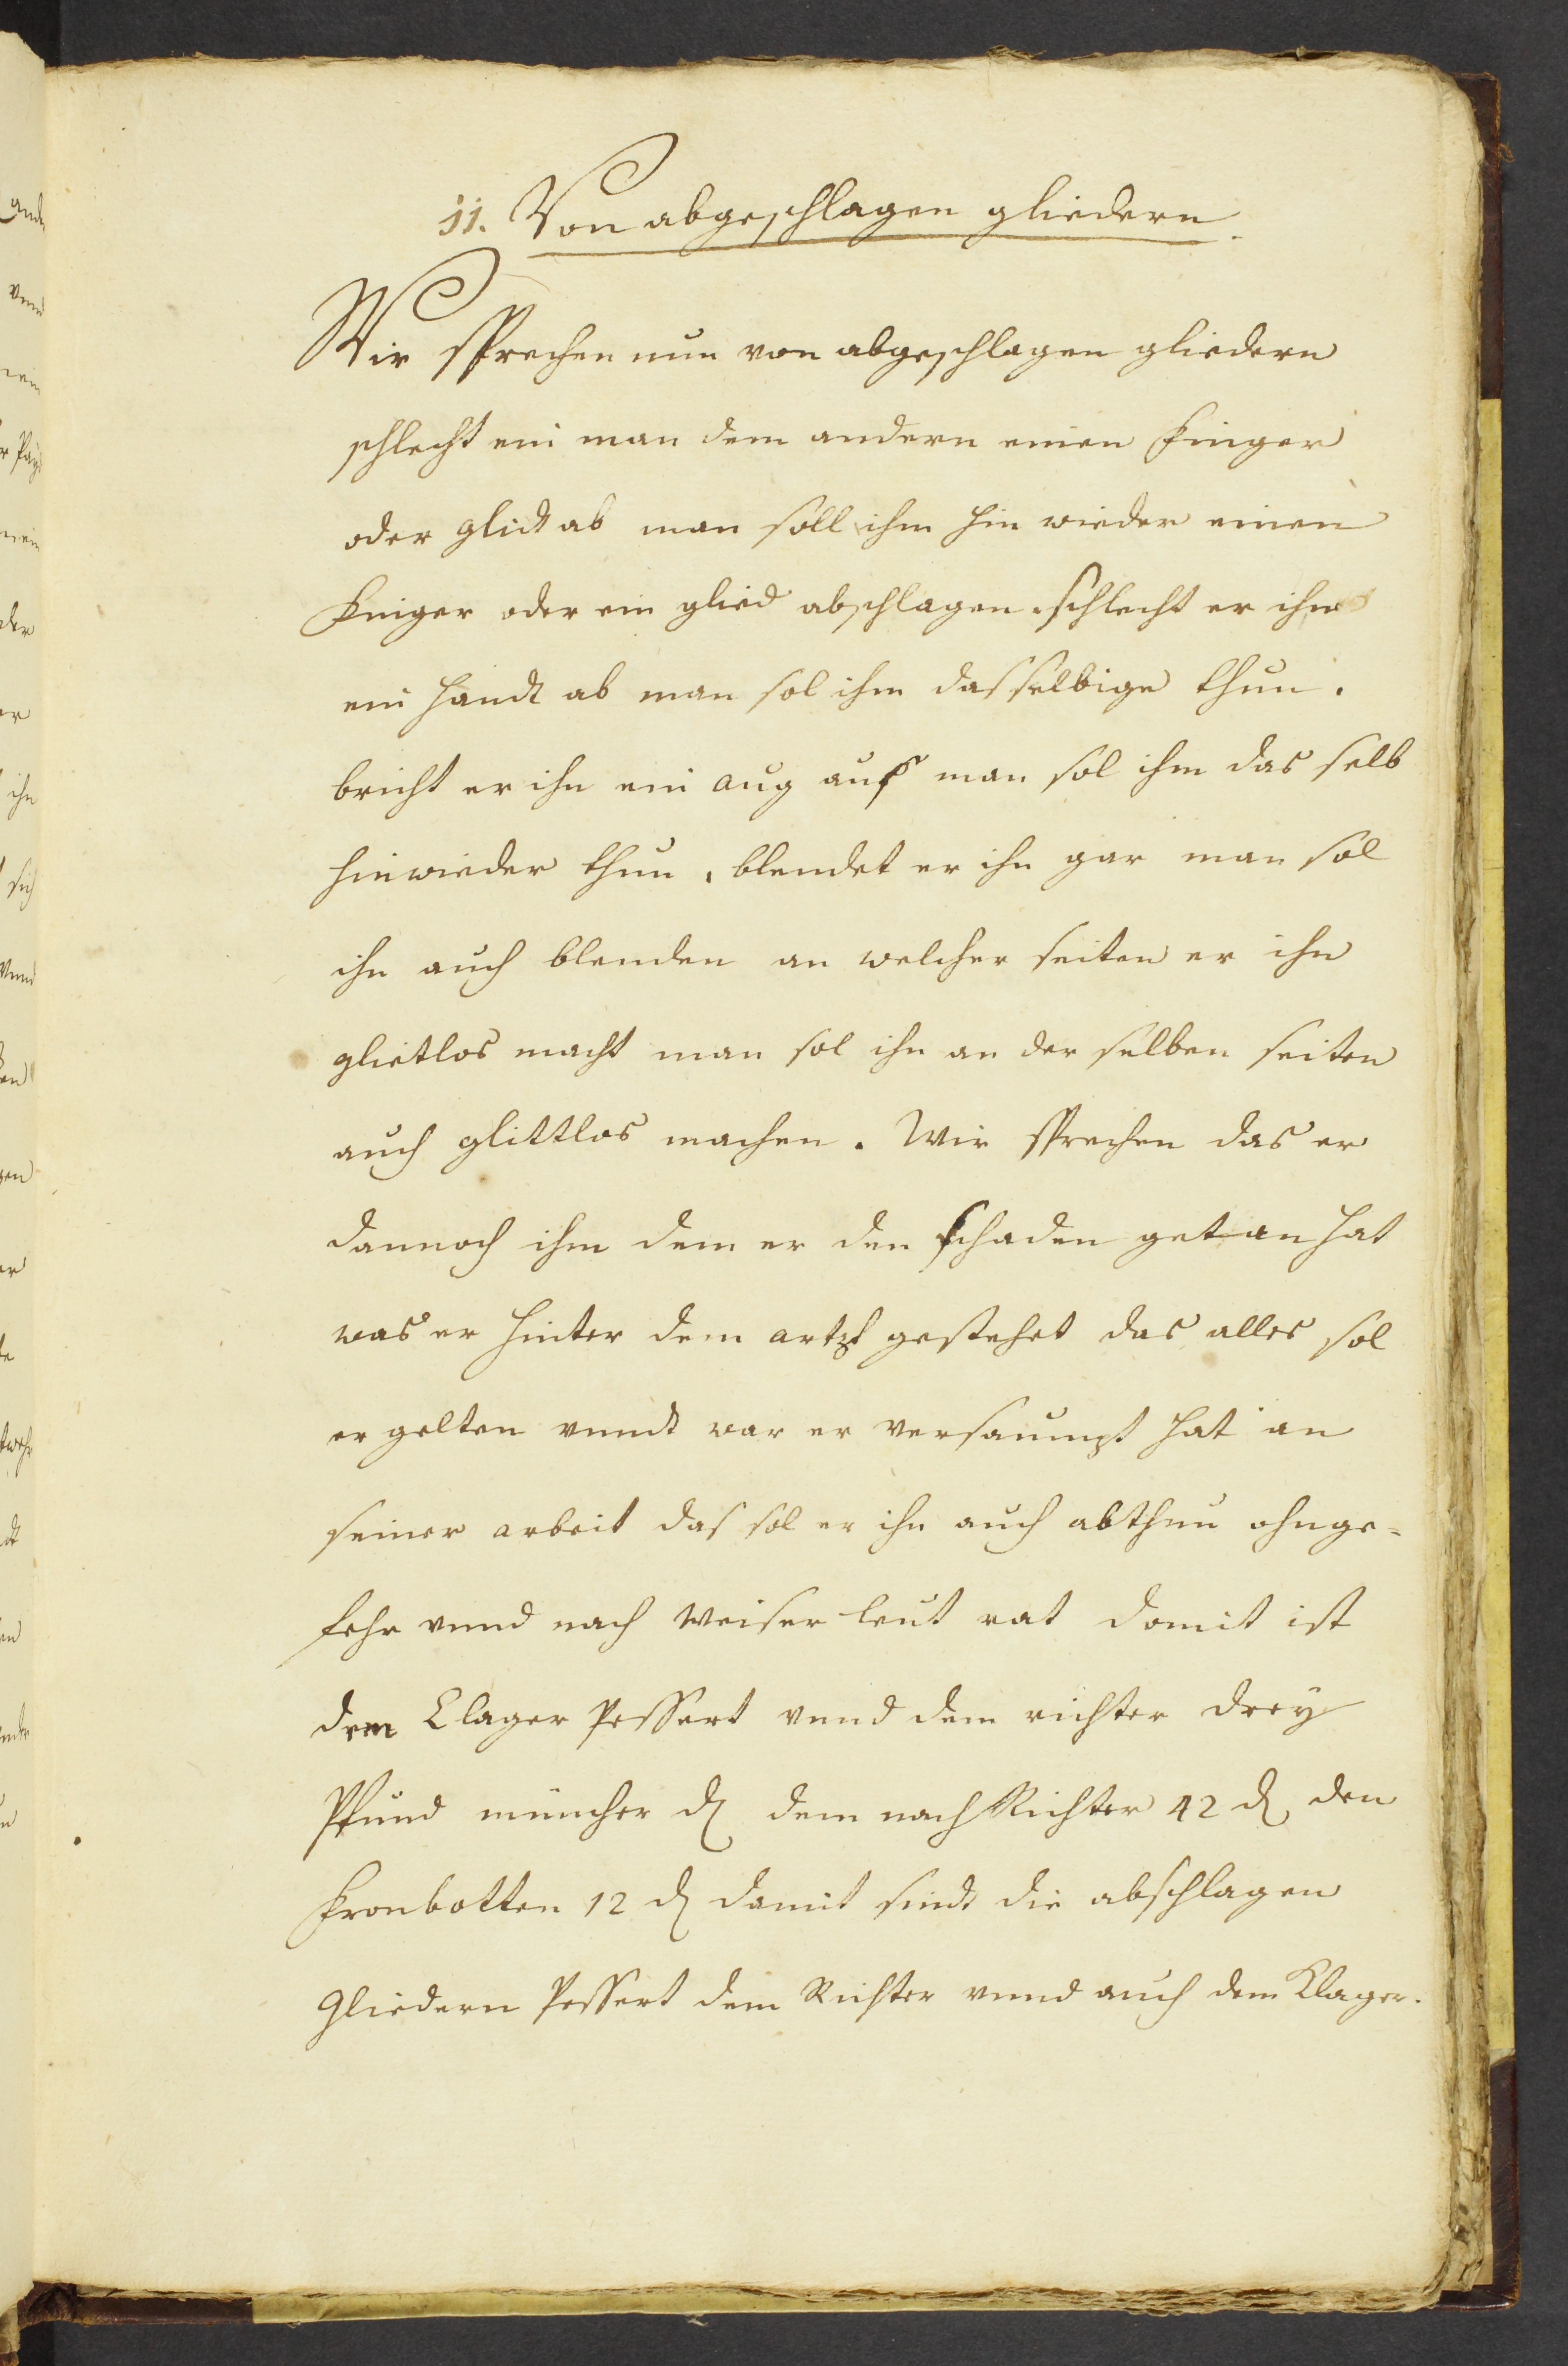 11. Von abgeschlagen gliedern.
Wir sprechen nun von abgeschlagen gliedern
schlecht ein man dem andern einen finger
oder glidt ab man soll ihm hin wieder einen
finger oder ein glied abschlagen. schlecht er ihm
ein handt ab man sol ihm dasselbige thun.
bricht er ihn ein aug auß man sol ihm das selb
hinwieder thun, blendet er ihn gar man sol
ihn auch blenden an welcher seiten er ihn
glietlos macht man sol ihn an der selben seiten
auch glittlos machen. Wir sprechen das er
dannoch ihm dem er den schaden getan hat
was er hinter dem artzt gestehet das alles sol
er gelten vnndt war er versaumpt hat an
seiner arbeit das sol er ihn auch abthun ohnge-
fehr vnnd nach weiser leut rat domit ist
dem Clager Pessert vnnd dem richter drey
Pfund muncher d dem nach Richter 42 d den
fronbotten 12 d damit sindt die abschlagen
Gliedern Pessert dem Richter vnnd auch dem Klager.